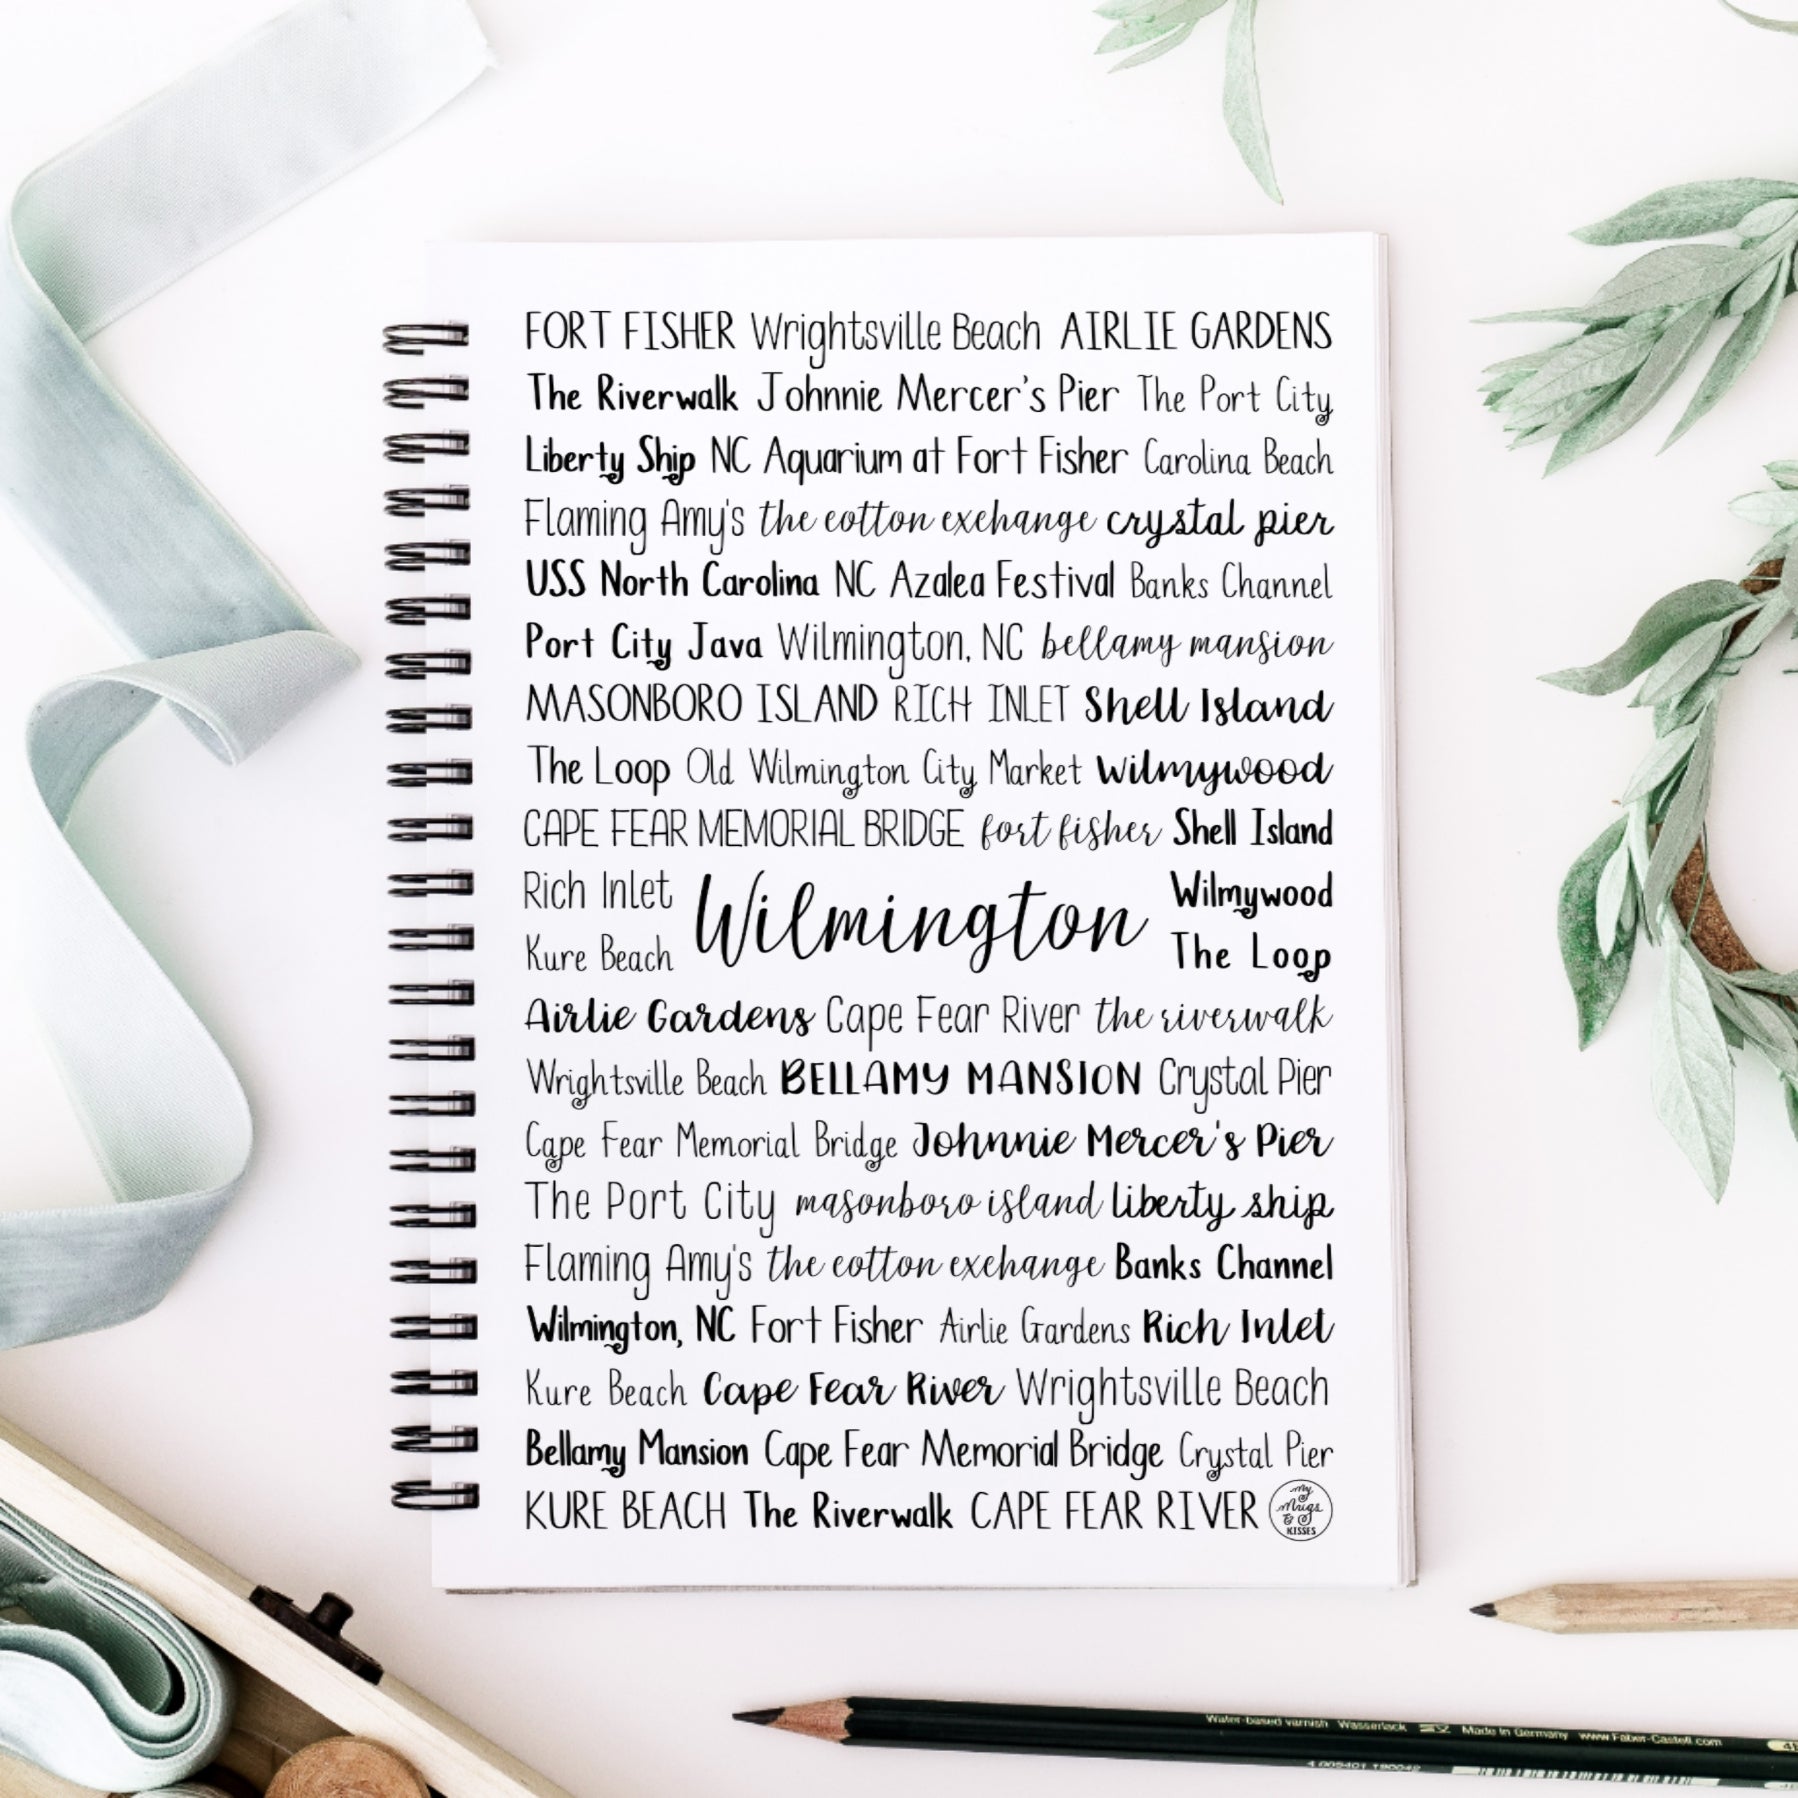 FORT FISHER Wrightsville Beach AIRLIE GARDENS
The Riverwalk Johnnie Mercer's Pier The Port City
Liberty Ship NC Aquarium at Fort Fisher Carolina Beach
Flaming Amy's the cotton exchange crystal pier
USS North Carolina NC Azalea Festival Banks Channel
Port City Java Wilmington, NC bellamy mansion
MASONBORO ISLAND RICH INLET Shell Island
The Loop Old Wilmington City Market Wilmywood
CAPE FEAR MEMORIAL BRIDGE fort fisher Shell Island
Rich Inlet
Kure Beach
Wilmington
Wilmywood
The Loop
Airlie Gardens Cape Fear River the riverwalk
Wrightsville Beach BELLAMY MANSION Crystal Pier
Cape Fear Memorial Bridge Johnnie Mercer's Pier
The Port City masonboro island liberty ship
Flaming Amy's the cotton exchange Banks Channel
Wilmington, NC Fort Fisher Airlie Gardens Rich Inlet
Kure Beach Cape Fear River Wrightsville Beach
Bellamy Mansion Cape Fear Memorial Bridge Crystal Pier
KURE BEACH The Riverwalk CAPE FEAR RIVER
My
Mugs
&
KISSES
Water-based varnish Wasserlack Made in Germany www.Faber-Castell.com